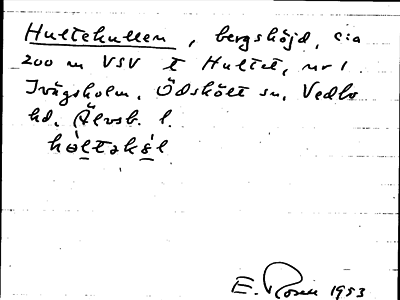 Hultekullen, bergshöjd, c:a
200 m VSV t Hultet, nr 1
Ivägsholm. Ödskölt sn, Vedbo
hd. Älvsb. l.
hòltəkól
E. Rosén 1953